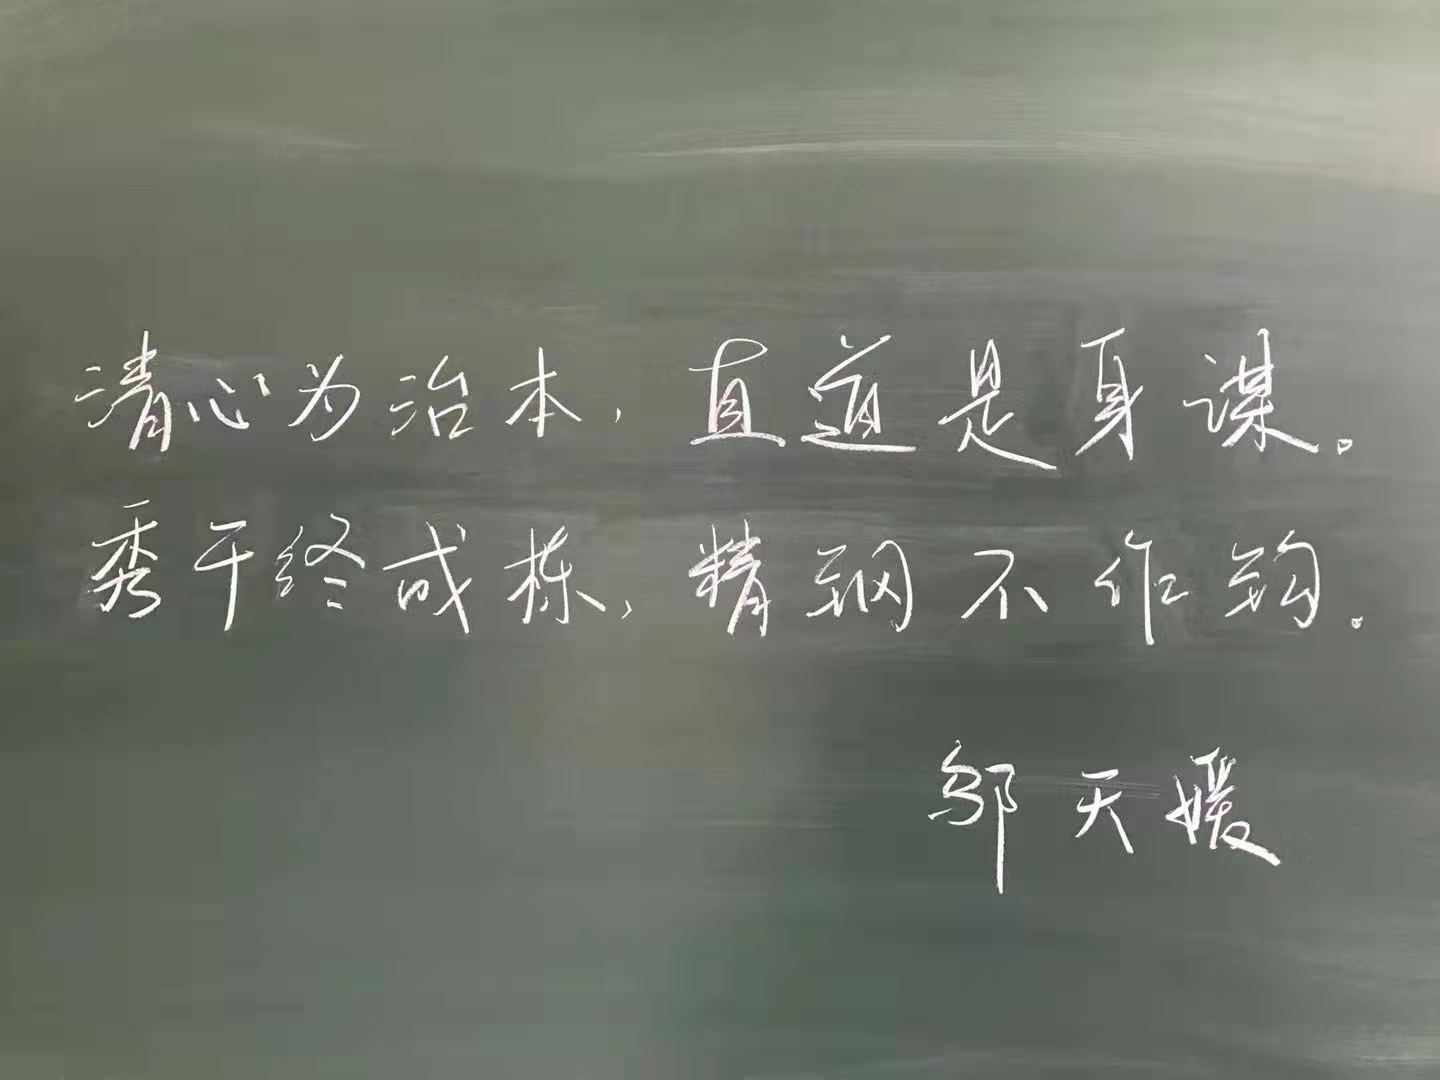 清心为治本，直道是身谋。
秀干终成栋，精钢不作钩.
邬天媛